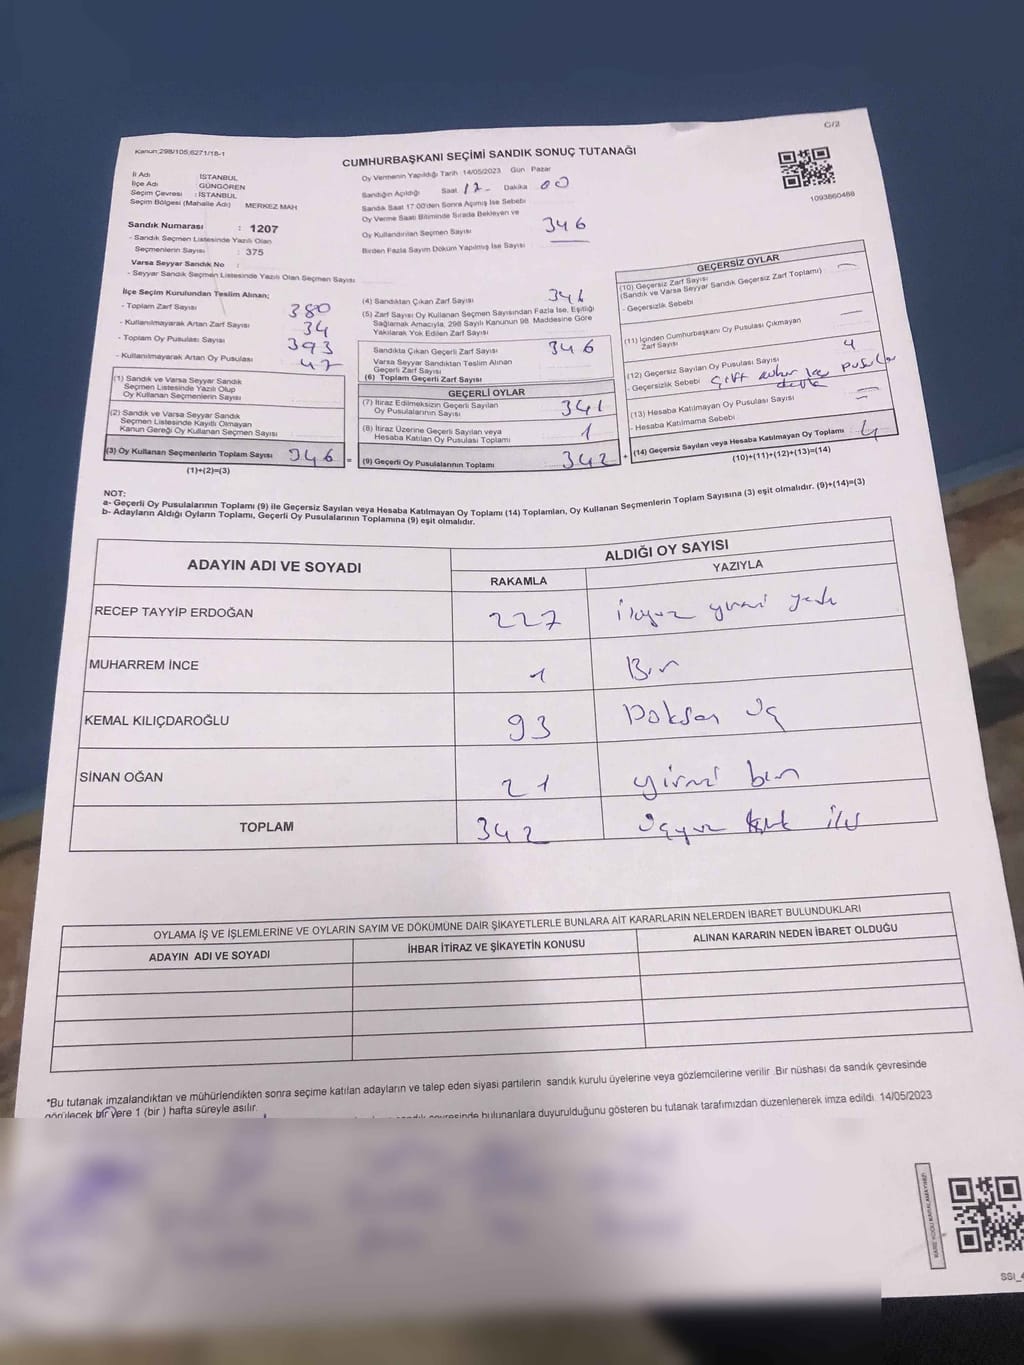 C/2
Kanun:298/105,6271/18-1
CUMHURBAŞKANI SEÇİMİ SANDIK SONUÇ TUTANAĞI
1093860488
İl Adı : İSTANBUL
İlçe Adı : GÜNGÖREN
Seçim Çevresi : İSTANBUL
Seçim Bölgesi (Mahalle Adı) MERKEZ MAH
Sandık Numarası : 1207
- Sandık Seçmen Listesinde Yazılı Olan
Seçmenlerin Sayısı : 375
Varsa Seyyar Sandık No :
- Seyyar Sandık Seçmen Listesinde Yazılı Olan Seçmen Sayısı
Oy Vermenin Yapıldığı Tarih :14/05/2023 Gün : Pazar
Sandığın Açıldığı Saat 17- Dakika 00
Sandık Saat 17:00'den Sonra Açımış İse Sebebi
Oy Verme Saati Bitiminde Sırada Bekleyen ve
Oy Kullandırılan Seçmen Sayısı 346
Birden Fazla Sayım Döküm Yapılmış İse Sayısı
İlçe Seçim Kurulundan Teslim Alınan;
- Toplam Zarf Sayısı 380
- Kullanılmayarak Artan Zarf Sayısı 34
- Toplam Oy Pusulası Sayısı 393
- Kullanılmayarak Artan Oy Pusulası 47
(1) Sandık ve Varsa Seyyar Sandık
Seçmen Listesinde Yazılı Olup
Oy Kullanan Seçmenlerin Sayısı
(2) Sandık ve Varsa Seyyar Sandık
Seçmen Listesinde Kayıtlı Olmayan
Kanun Gereği Oy Kullanan Seçmen Sayısı
(3) Oy Kullanan Seçmenlerin Toplam Sayısı 346 =
(1)+(2)=(3)
(4) Sandıktan Çıkan Zarf Sayısı 346
(5) Zarf Sayısı Oy Kullanan Seçmen Sayısından Fazla İse, Eşitliği
Sağlamak Amacıyla, 298 Sayılı Kanunun 98. Maddesine Göre
Yakılarak Yok Edilen Zarf Sayısı
Sandıkta Çıkan Geçerli Zarf Sayısı 346
Varsa Seyyar Sandıktan Teslim Alınan
Geçerli Zarf Sayısı
(6) Toplam Geçerli Zarf Sayısı
GEÇERLİ OYLAR
(7) İtiraz Edilmeksizin Geçerli Sayılan
Oy Pusulalarının Sayısı 341
(8) İtiraz Üzerine Geçerli Sayılan veya
Hesaba Katılan Oy Pusulası Toplamı 1
(9) Geçerli Oy Pusulalarının Toplamı 342 +
GEÇERSİZ OYLAR
(10) Geçersiz Zarf Sayısı
(Sandık ve Varsa Seyyar Sandık Geçersiz Zarf Toplamı)
- Geçersizlik Sebebi
(11) İçinden Cumhurbaşkanı Oy Pusulası Çıkmayan
Zarf Sayısı
(12) Geçersiz Sayılan Oy Pusulası Sayısı 4
- Geçersizlik Sebebi çift pusula
(13) Hesaba Katılmayan Oy Pusulası Sayısı
- Hesaba Katılmama Sebebi
(14) Geçersiz Sayılan veya Hesaba Katılmayan Oy Toplamı 4
(10)+(11)+(12)+(13)=(14)
NOT:
a- Geçerli Oy Pusulalarının Toplamı (9) ile Geçersiz Sayılan veya Hesaba Katılmayan Oy Toplamı (14) Toplamları, Oy Kullanan Seçmenlerin Toplam Sayısına (3) eşit olmalıdır. (9)+(14)=(3)
b- Adayların Aldığı Oyların Toplamı, Geçerli Oy Pusulalarının Toplamına (9) eşit olmalıdır.
ADAYIN ADI VE SOYADI ALDIĞI OY SAYISI
RAKAMLA YAZIYLA
RECEP TAYYİP ERDOĞAN 227 ikiyüz yirmi yedi
MUHARREM İNCE 1 Bir
KEMAL KILIÇDAROĞLU 93 Doksan üç
SİNAN OĞAN 21 yirmi bir
TOPLAM 342 üçyüz kırk iki
OYLAMA İŞ VE İŞLEMLERİNE VE OYLARIN SAYIM VE DÖKÜMÜNE DAİR ŞİKAYETLERLE BUNLARA AİT KARARLARIN NELERDEN İBARET BULUNDUKLARI
ADAYIN ADI VE SOYADI İHBAR İTİRAZ VE ŞİKAYETİN KONUSU ALINAN KARARIN NEDEN İBARET OLDUĞU
*Bu tutanak imzalandıktan ve mühürlendikten sonra seçime katılan adayların ve talep eden siyasi partilerin sandık kurulu üyelerine veya gözlemcilerine verilir .Bir nüshası da sandık çevresinde
görülecek bir yere 1 (bir ) hafta süreyle asılır.
çevresinde bulunanlara duyurulduğunu gösteren bu tutanak tarafımızdan düzenlenerek imza edildi. 14/05/2023